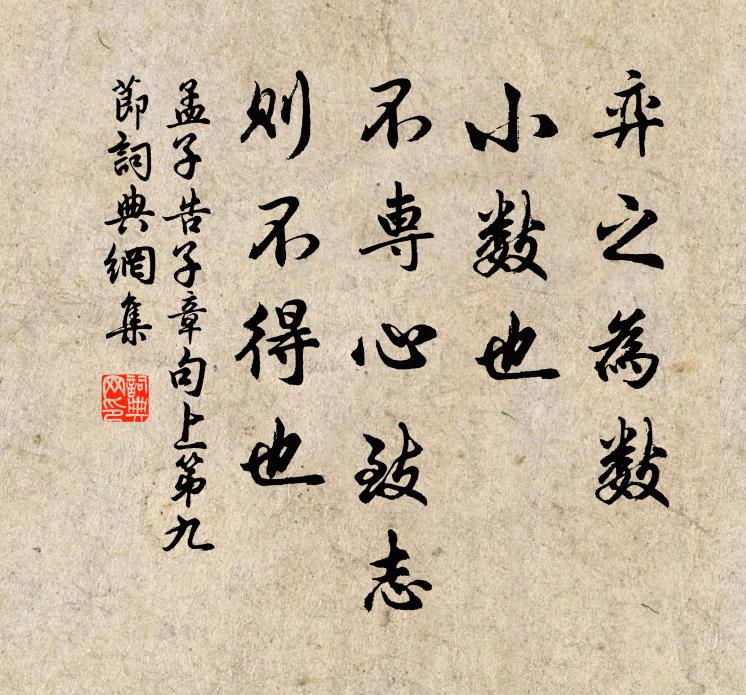 弈之為數
小數也
不專心致志
則不得也
孟子告子章句上第九
節詞典網集
詞典网印